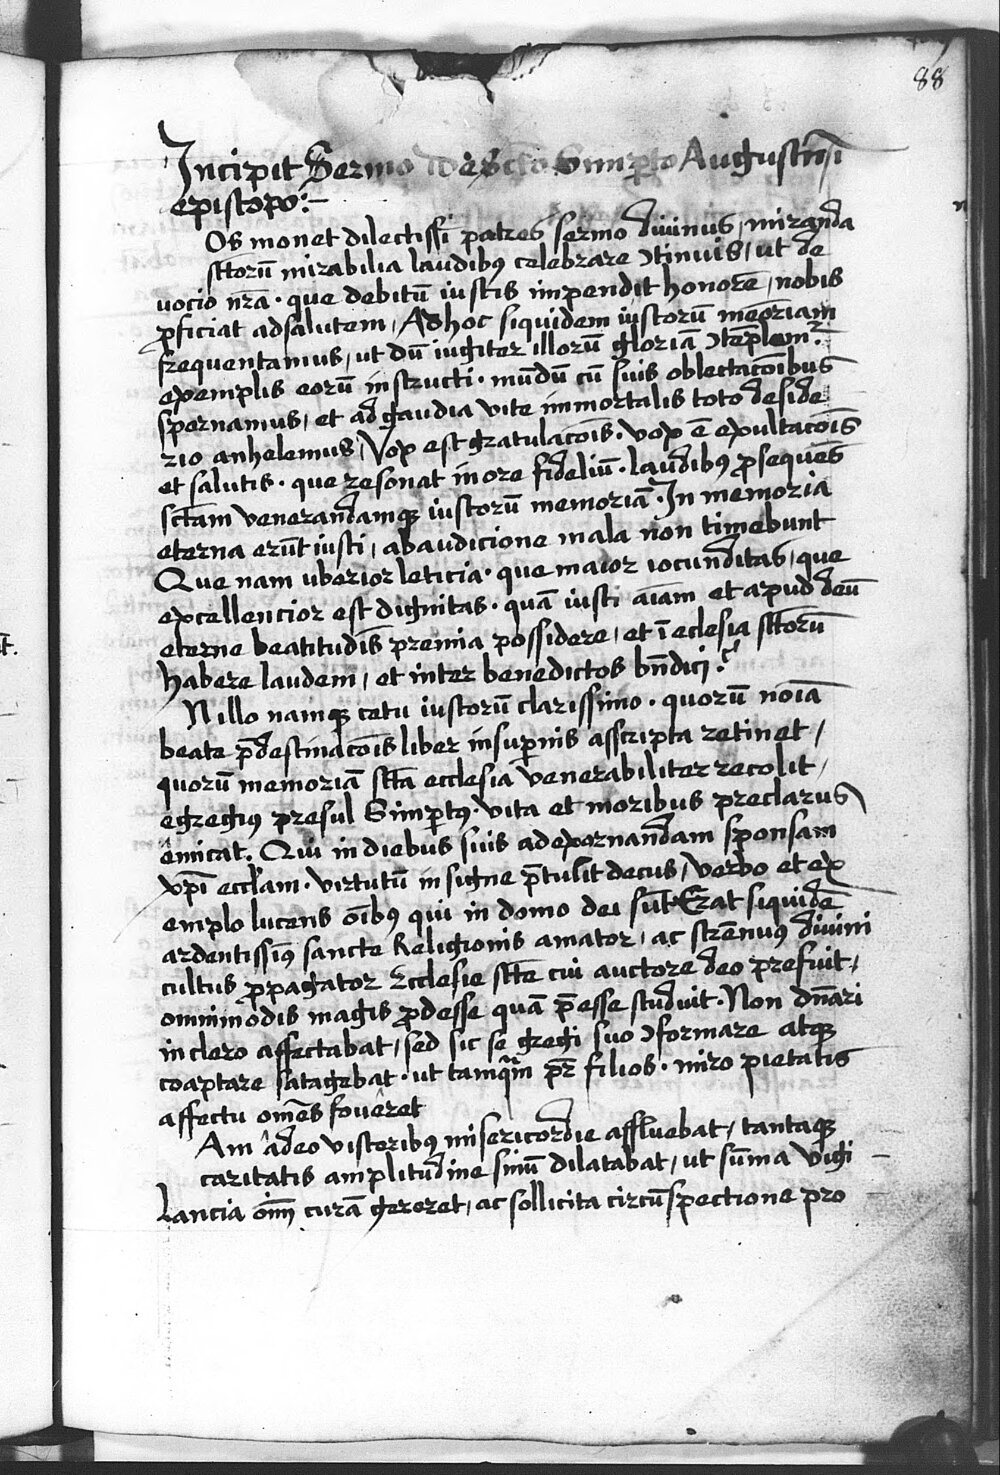 88
Incipit Sermo de Scto Simperto Augustnsi
episcopo :-
Os monet dilectissi patres sermo diuinus / miranda
sctorū mirabilia laudibꝰ celebrare ꝯtinuis / ut de
uocio nrā · que debitū iustis impendit honorē / nobis
ꝓficiat ad salutem / Ad hoc siquidem iustorū meōriam
frequentamus / ut dū iugiter illorū gloriā ꝯtēplam²
exemplis eorū instructi · mūdū cū suis oblectacōibus
spernamus / et ad gaudia vite immortalis toto deside
rio anhelemus / Vox est gratulacōis · vox ē exultacōis
et salutis · que resonat in ore fideliū · laudibꝰ ꝓsequēs
sctam venerandamqꝫ iustorū memoriā · In memoria
eterna erūt iusti / ab audicione mala non timebunt
Que nam vberior leticia · que maior iocunditas / que
excellencior est dignitas · quā iusti aīam et apud deū
eterne beatitudīs premia possidere / et ī eclesia sctorū
habere laudem / et inter benedictos bn̄dici ?
N illo namqꝫ cetu iustorū clarissimo · quorū noīa
beate p̄destinacōis liber in suꝑnis asscripta retinet /
quorū memoriā sctā ecclesia venerabiliter recolit /
egregiꝰ presul Simꝑtꝰ · vita et moribus preclarus
emicat . Qui in diebus suis ad exornandam sponsam
xp̄i eccl'am · virtutū insigne p̄tulit decus / verbo et ex
emplo lucens oībꝰ qui in domo dei sūt Erat siquidē
ardentissiꝰ sancte Religionis amator / ac strēnuꝰ diuini
cultus ꝓpagator Ecclesie scte cui auctore deo prefuit /
omnimodis magis ꝓdesse quā p̄esse studuit · Non dn̄ari
in clero affectabat / sed sic se gregi suo ꝯformare atqꝫ
coaptare satagebat · ut tamqm̄ pr̄ filios · miro pietatis
affectu omēs foueret
Am adeo visceribꝰ misericordie affluebat / tantaqꝫ
caritatis amplitudine sinū dilatabat / ut sūma vigi
lancia oīm curā gereret / ac sollicita circūspectione pro